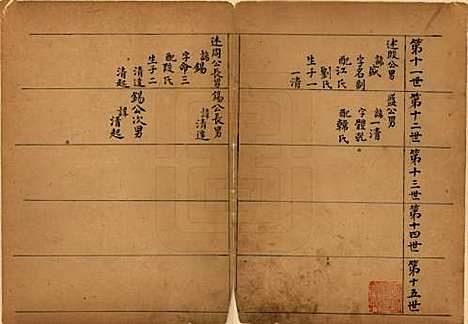 第十一世
第十二世
第十三世
第十四世
第十五世
述殷公男
諱斌
字名剛
配江氏
劉氏
生子一
一清
公男
諱一清
字體乾
配韓氏
述周公長男
諱錫
字命三
配段氏
生子二
清達
清起
錫公長男
諱清達
錫公次男
諱清起